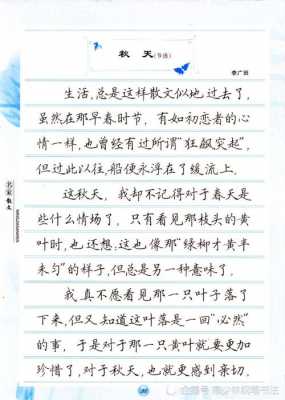 秋 天(节选)
李广田
生活,总是这样散文似地过去了,
虽然在那早春时节,有如初恋者的心
情一样,也曾经有过所谓“狂飙突起”,
但过此以往,船便永浮在了缓流上.
这秋天,我却不记得对于春天是
些什么情场了,只有看见那枝头的黄
叶时,也还想:这也像那“绿柳才黄半
未匀”的样子,但总是另一种意味了.
我真不愿看见那一只叶子落了
下来,但又知道这叶落是一回“必然”
的事,于是对于那一只黄叶就要更加
珍惜了,对于秋天,也就更感到亲切.
名家散文